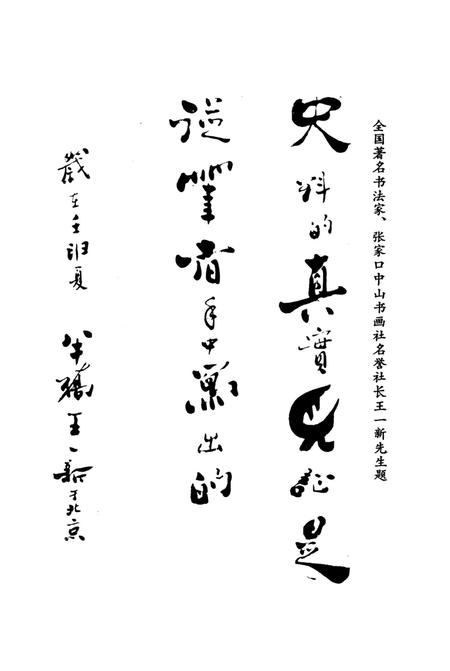 全国著名书法家、张家口中山书画社名誉社长王一新先生题
史料的真實見証是
從筆者手中寫出的
歲在壬夏 王一新于北京